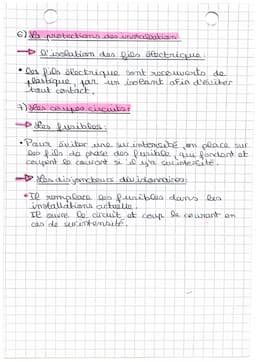 6) La protections des installation
→ L'isolation des fils électrique:
• Les fils électrique sont recouverts de
plastique, par un isolant afin d'éviter
tout contact.
7) Les coupes circuits:
→ Les fusibles:
• Pour éviter une surintensité, on place sur
les fils de phase des fusible, qui fondent et
coupent le courant si il y'a surintensité.
→ Les disjoncteurs divisionnaires:
• Il remplace les fusibles dans les
installations actuelle.
Il ouvre le circuit et coup le courant en
cas de surintensité.